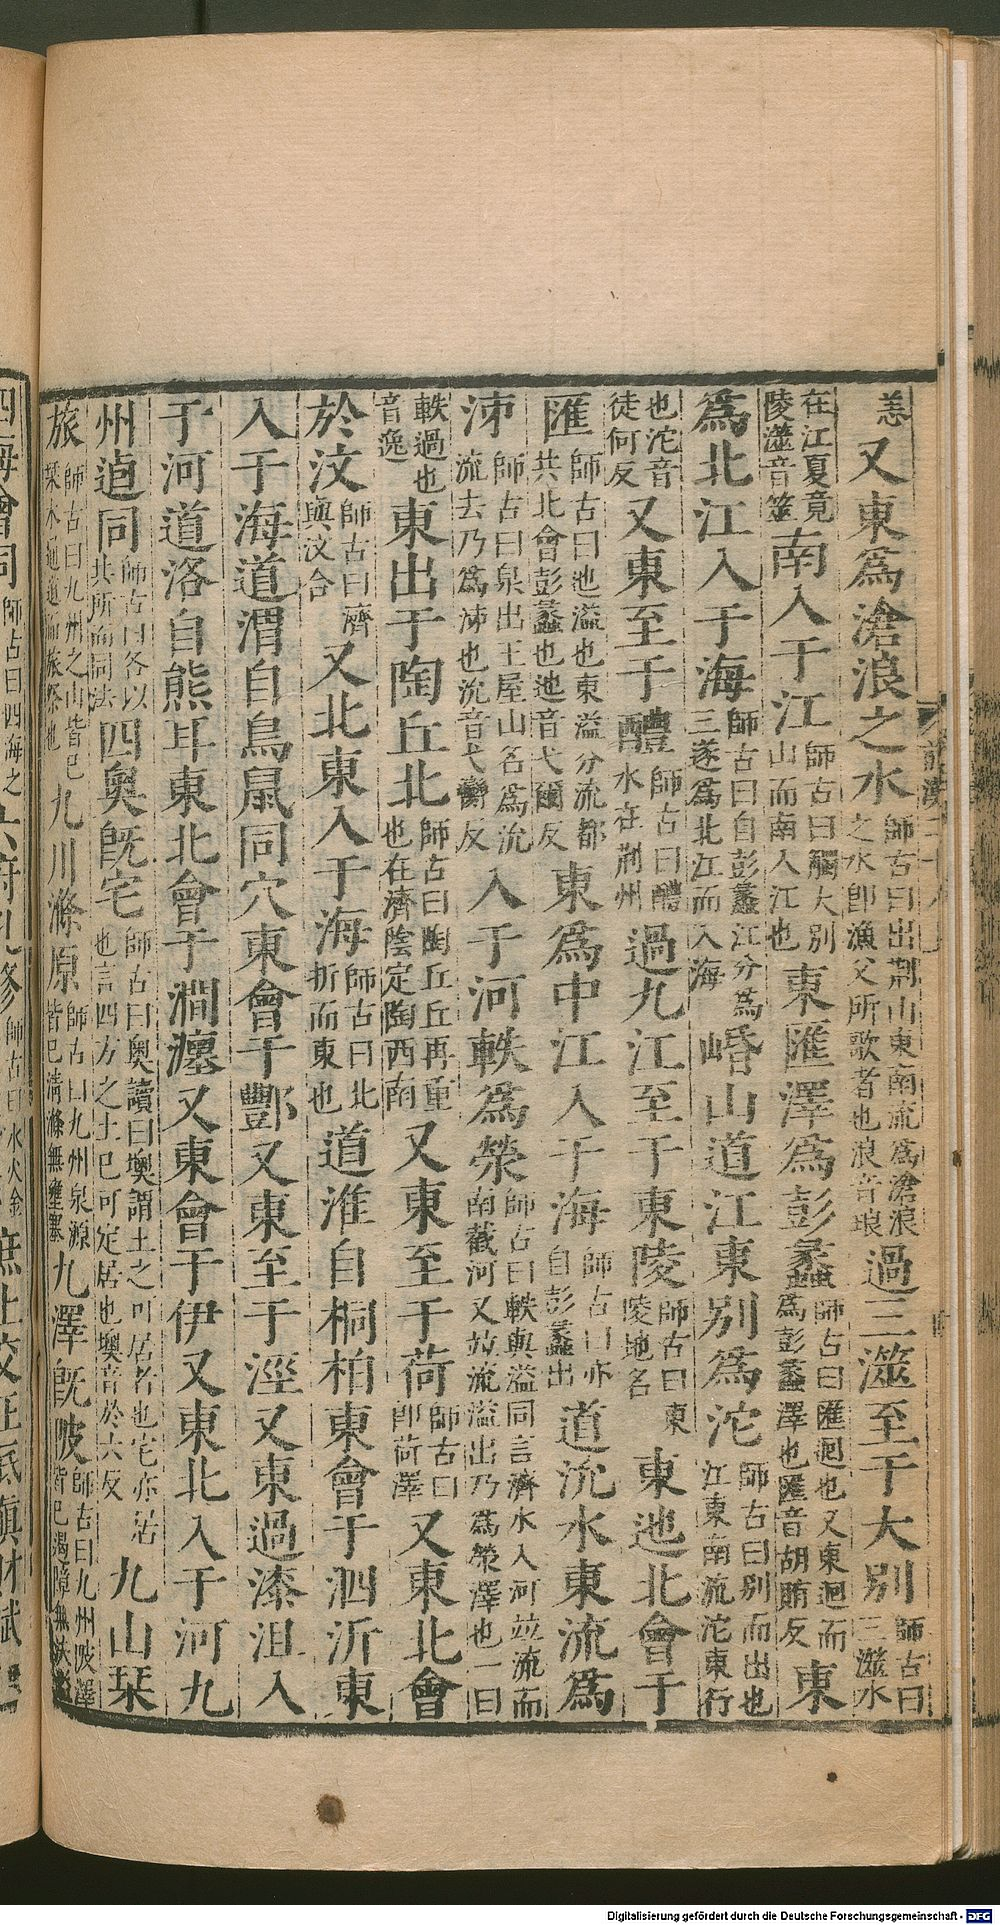 恙又東爲滄浪之水師古曰出荆山東南流爲滄浪之水即漁父所歌者也浪音琅過三澨至于大别師古曰三澨水
在江夏竟陵澨音筮南入于江師古曰觸大别山而南入江也東匯澤爲彭蠡師古曰匯迴也又東迴而爲彭蠡澤也匯音胡賄反東
爲北江入于海師古曰自彭蠡江分爲三遂爲北江而入海㟭山道江東别爲沱師古曰别而出也江東南流沱東行
也沱音徒何反又東至于醴師古曰醴水在荆州過九江至于東陵師古曰東陵地名東迆北會于
匯師古曰迆溢也東溢分流都共北會彭蠡也迆音弋爾反東爲中江入于海師古曰亦自彭蠡出道沇水東流爲
泲師古曰泉出王屋山名爲沇流去乃爲泲也沇音弋臠反入于河軼爲滎師古曰軼與溢同言濟水入河竝流而南截河又竝流溢出乃爲滎澤也一曰
軼過也音逸東出于陶丘北師古曰陶丘丘再重也在濟陰定陶西南又東至于荷師古曰即荷澤又東北會
於汶師古曰濟與汶合又北東入于海師古曰北折而東也道淮自桐柏東會于泗沂東
入于海道渭自鳥鼠同穴東會于酆又東至于涇又東過漆沮入
于河道洛自熊耳東北會于澗瀍又東會于伊又東北入于河九
州逌同師古曰各以其所而同法四奥旣宅師古曰奥讀曰墺謂土之可居者也宅亦居也言四方之土已可定居也墺音於六反九山栞
旅師古曰九州之山皆已栞木通道而旅祭也九川滌原師古曰九州泉源皆已清滌無壅塞九澤旣陂師古曰九州陂澤皆已遏障無決溢
四海會同師古曰四海之六府孔修師古曰水火金庶土交正厎愼財賦
前漢二十八
Digitalisierung gefördert durch die Deutsche Forschungsgemeinschaft - DFG